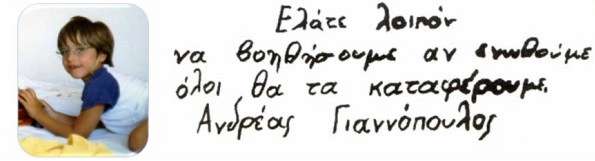 Ελάτε λοιπόν
να βοηθήσουμε αν ενωθούμε
όλοι θα τα καταφέρουμε.
Ανδρέας Γιαννόπουλος